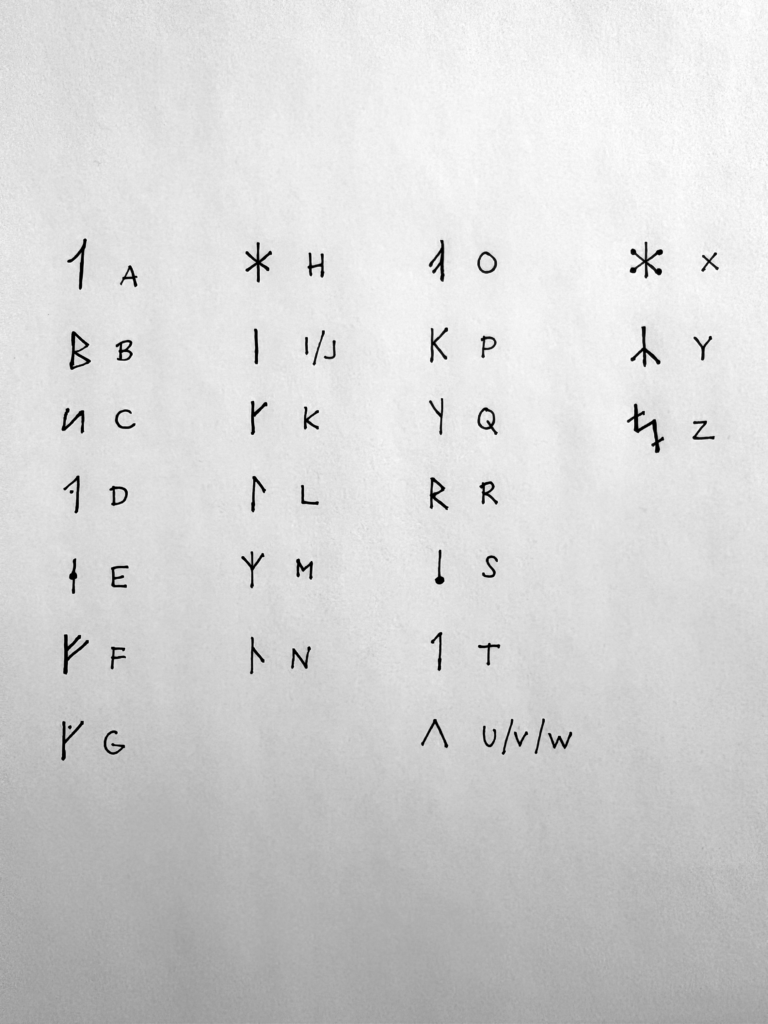 ᛐ A
ᛒ B
ᛋ C
ᛑ D
ᛂ E
ᚠ F
ᚵ G
ᚼ H
ᛁ I/J
ᚴ K
ᛚ L
ᛘ M
ᚿ N
ᚮ O
ᛕ P
ᛩ Q
ᚱ R
ᛌ S
ᛐ T
ᚢ U/V/W
ᛪ X
ᛦ Y
ᛎ Z